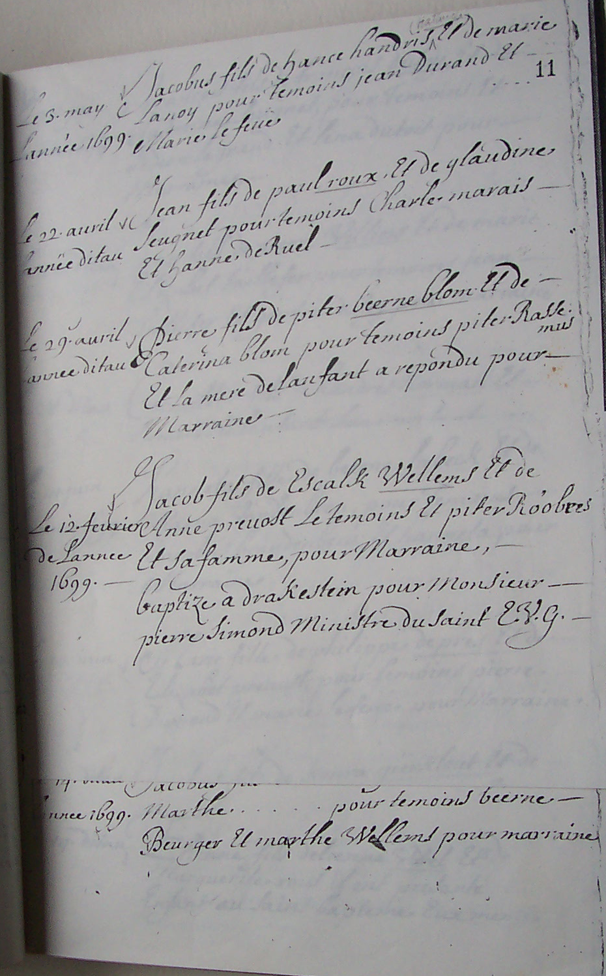 11
Jacobus fils de hance handris Et de marie
Le 3. may Lanoy pour temoins jean Durand Et
Lannée 1699. Marie le feue
Jean fils de paul roux. Et de glaudine
Le 22 avril Seugnet pour temoins Charle marais
année ditau Et hanne de Ruel
Le 29 avril Pierre fils de piter beerne blom Et de
année ditau Caterina blom pour temoins piter Rasse
mus
Et La mere de Lanfant a repondu pour
Marraine
Jacob fils de Escalk Wellems Et de
Le 12. feurier Anne preuost Le temoins Et piter Roobres
de Lannee Et sa famme, pour Marraine,
1699.
baptize a drakestein pour Monsieur
pierre Simond Ministre du Saint E.V.G.
Jacobus
nnee 1699. Marthe . . . . . . pour temoins beerne
Beurger Et marthe Wellems pour marraine